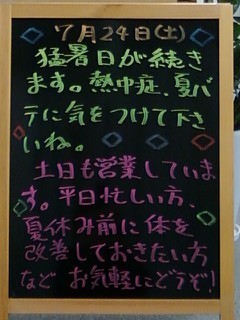 7月24日(土)
猛暑日が続き
ます。熱中症、夏バ
テに気をつけて下さ
いね。
土日も営業していま
す。平日忙しい方、
夏休み前に体を
改善しておきたい方
など お気軽にどうぞ!